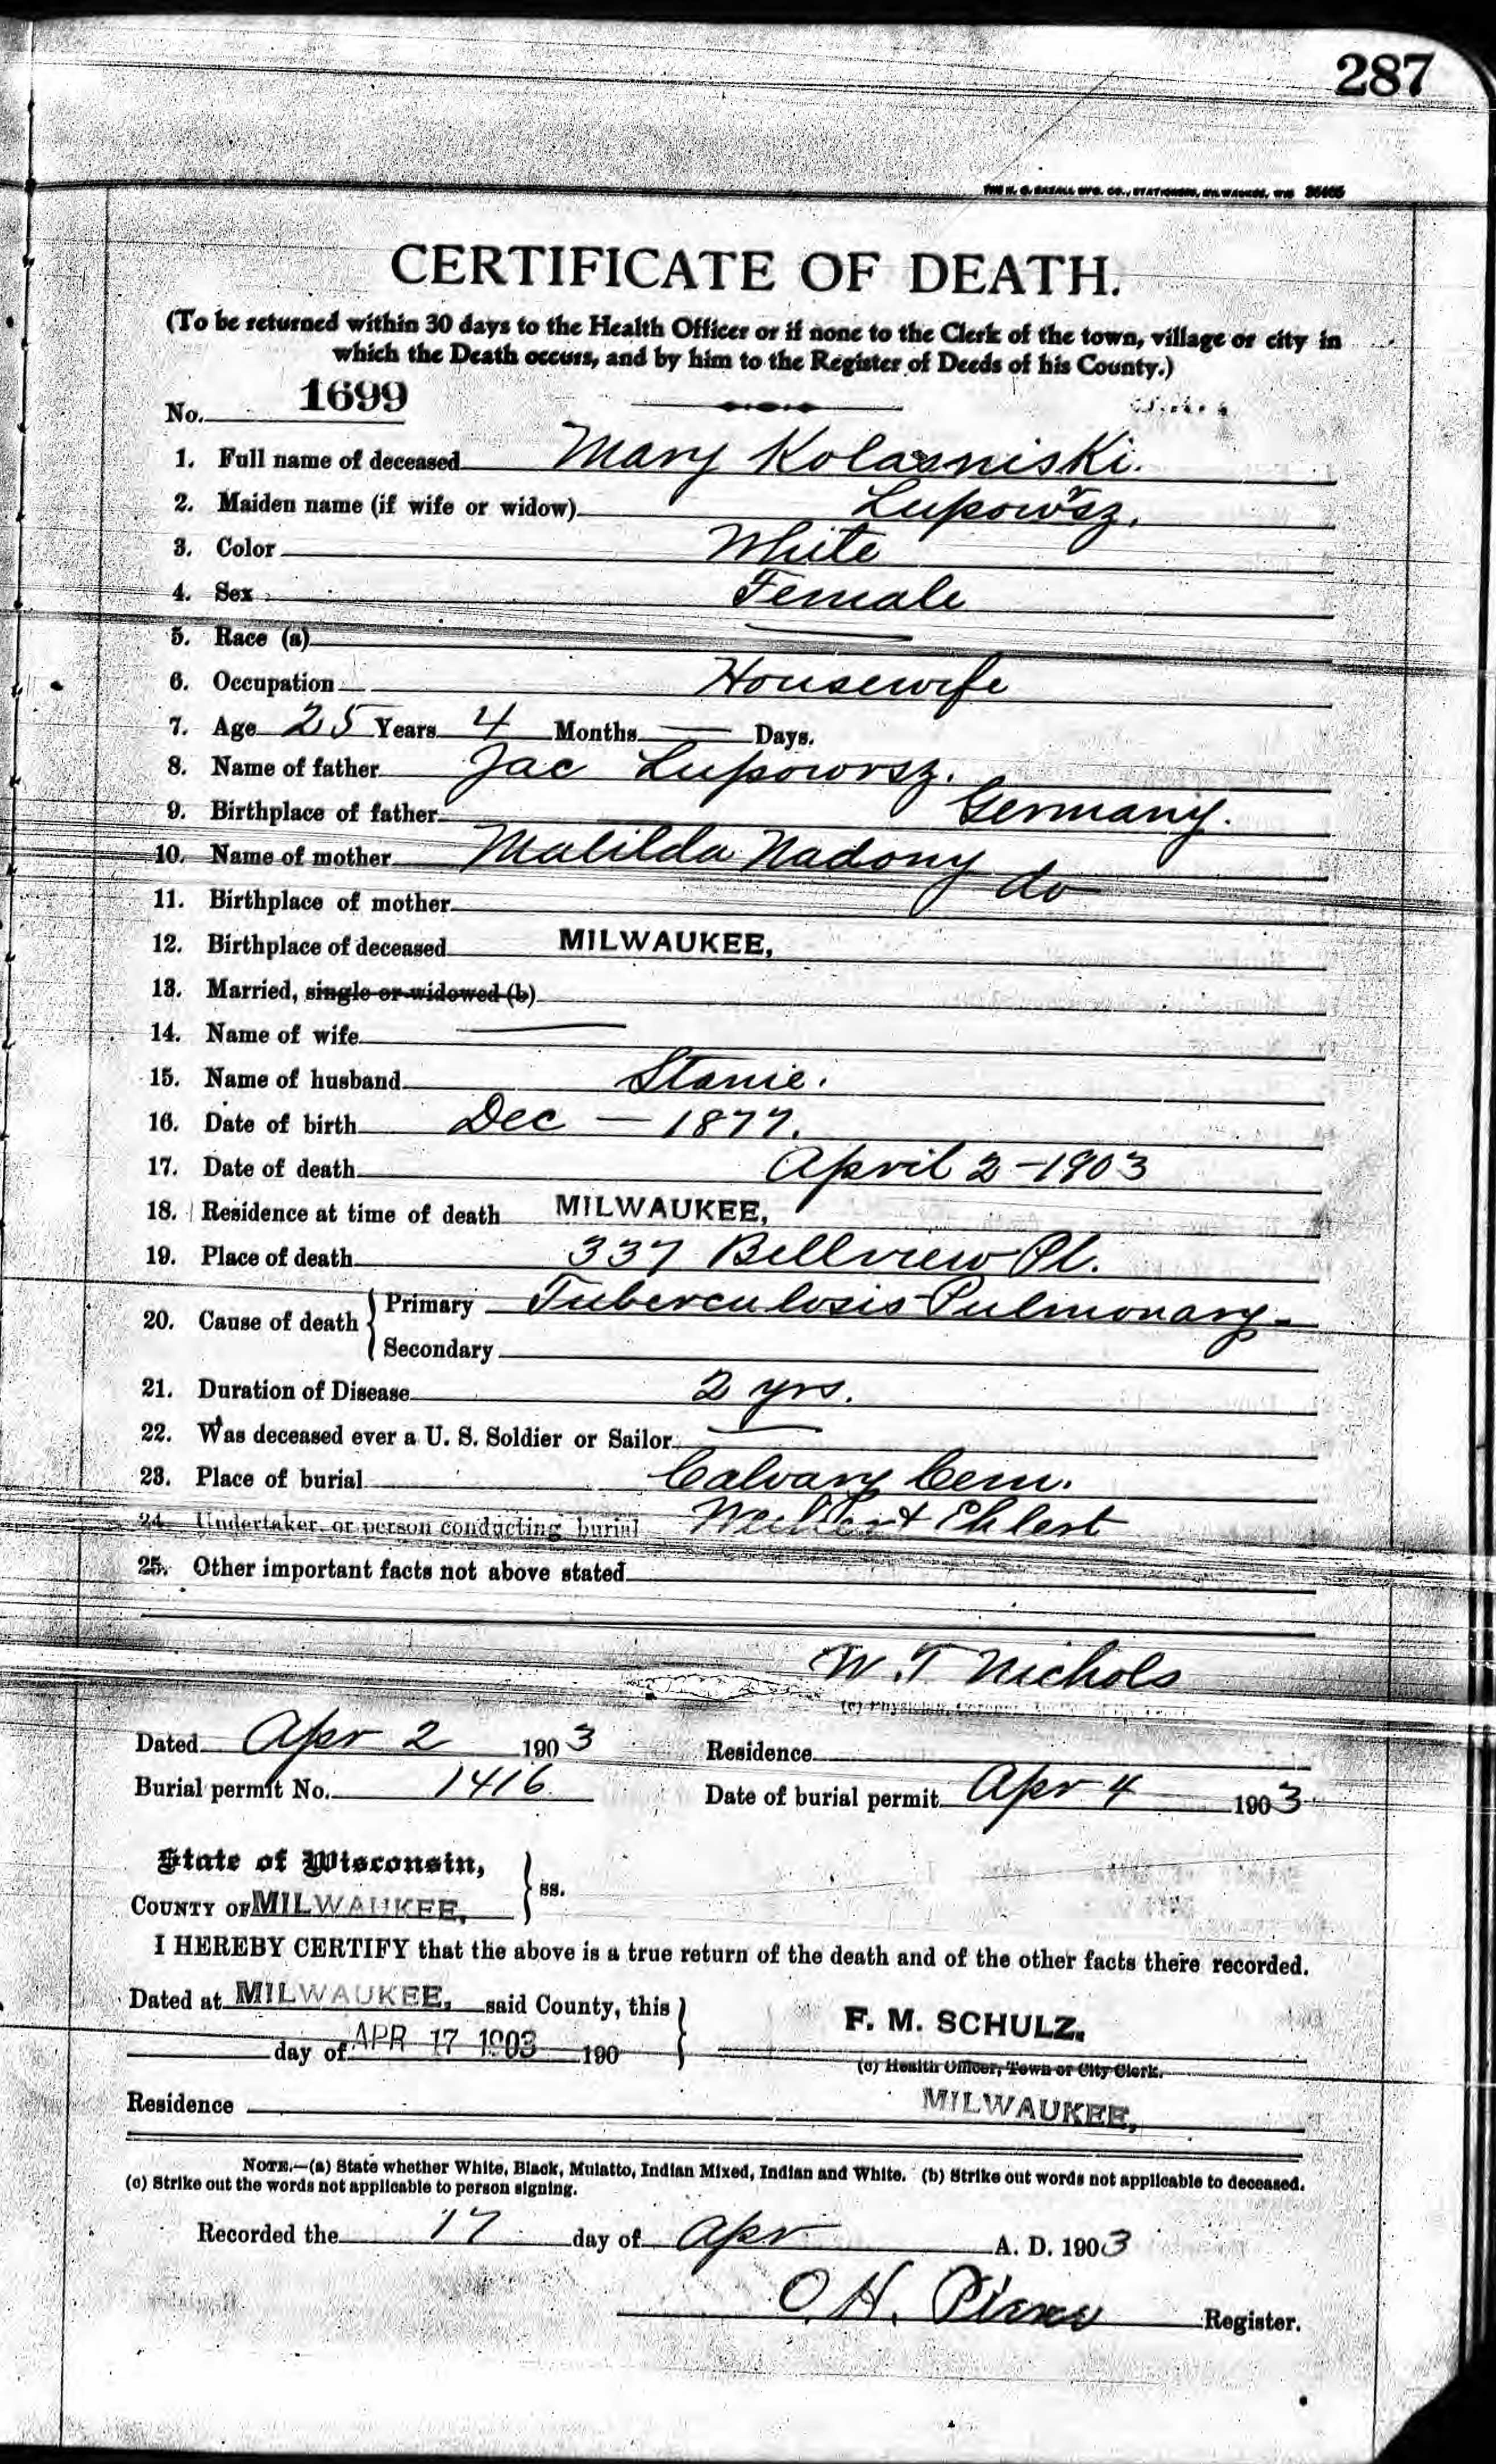 287
THE H. G. RAZALL MFG. CO., STATIONERS, MILWAUKEE, WIS
CERTIFICATE OF DEATH.
(To be returned within 30 days to the Health Officer or if none to the Clerk of the town, village or city in
which the Death occurs, and by him to the Register of Deeds of his County.)
No. 1699
1. Full name of deceased Mary Kolasniski.
2. Maiden name (if wife or widow) Lupowsz.
3. Color White
4. Sex Female
5. Race (a)
6. Occupation Housewife
7. Age 25 Years 4 Months — Days.
8. Name of father Jac Lupowrsz.
9. Birthplace of father Germany.
10. Name of mother Matilda Nadony
11. Birthplace of mother do
12. Birthplace of deceased MILWAUKEE,
13. Married, single or widowed (b)
14. Name of wife —
15. Name of husband Stanie.
16. Date of birth Dec — 1877.
17. Date of death April 2-1903
18. Residence at time of death MILWAUKEE,
19. Place of death 337 Bellview Pl.
20. Cause of death { Primary Tuberculosis Pulmonary-
Secondary
21. Duration of Disease 2 yrs.
22. Was deceased ever a U. S. Soldier or Sailor —
23. Place of burial Calvary Cem.
24. Undertaker or person conducting burial Ehlert
25. Other important facts not above stated
W. T Nichols
(c) Physician,
Dated Apr 2 1903 Residence
Burial permit No. 1416 Date of burial permit Apr 4 1903
State of Wisconsin, } ss.
COUNTY OF MILWAUKEE,
I HEREBY CERTIFY that the above is a true return of the death and of the other facts there recorded.
Dated at MILWAUKEE, said County, this } F. M. SCHULZ.
day of APR 17 1903 190 (c) Health Officer, Town or City Clerk.
Residence MILWAUKEE,
NOTE.—(a) State whether White, Black, Mulatto, Indian Mixed, Indian and White. (b) Strike out words not applicable to deceased.
(c) Strike out the words not applicable to person signing.
Recorded the 17 day of Apr A. D. 1903
O. H. Register.